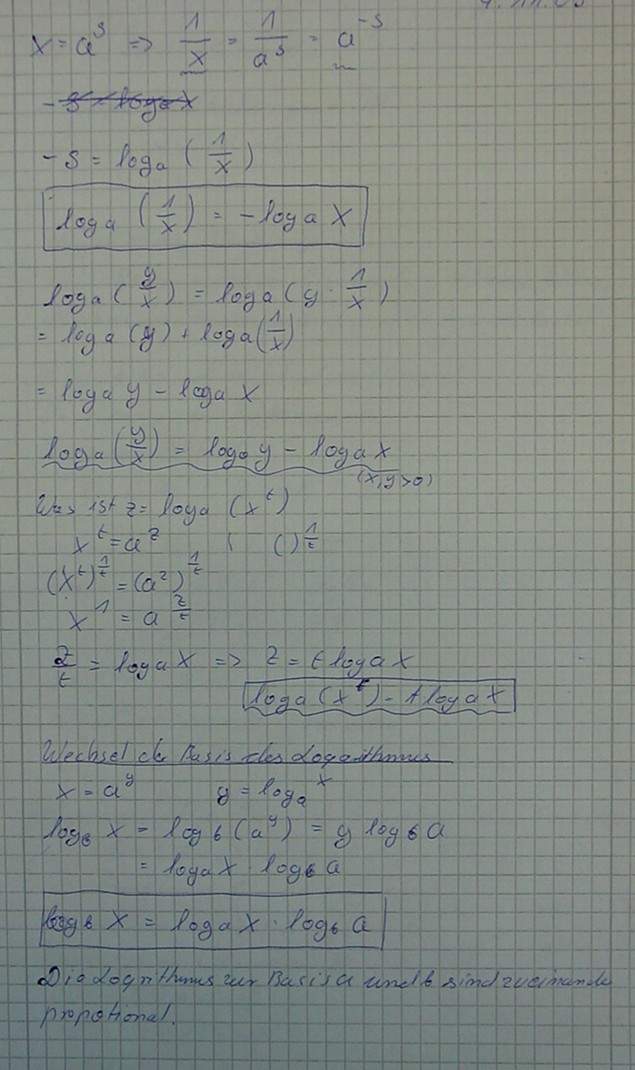 x = a^s => 1/x = 1/a^s = a^-s
- s = loga (1/x)
loga (1/x) = - loga x
loga (y/x) = loga (y · 1/x)
= loga (y) + loga (1/x)
= loga y - loga x
loga (y/x) = loga y - loga x
(x,y>0)
Was ist z = loga (x^t)
x^t = a^z | ( )^1/t
(x^t)^1/t = (a^z)^1/t
x^1 = a^z/t
z/t = loga x => z = t loga x
loga (x^t) = t loga x
Wechsel de Basis des Logarithmus
x = a^y y = loga x
logb x = logb (a^y) = y logb a
= loga x · logb a
logb x = loga x · logb a
Die Logrithmus zur Basis a und b sind zueinande
propotional.